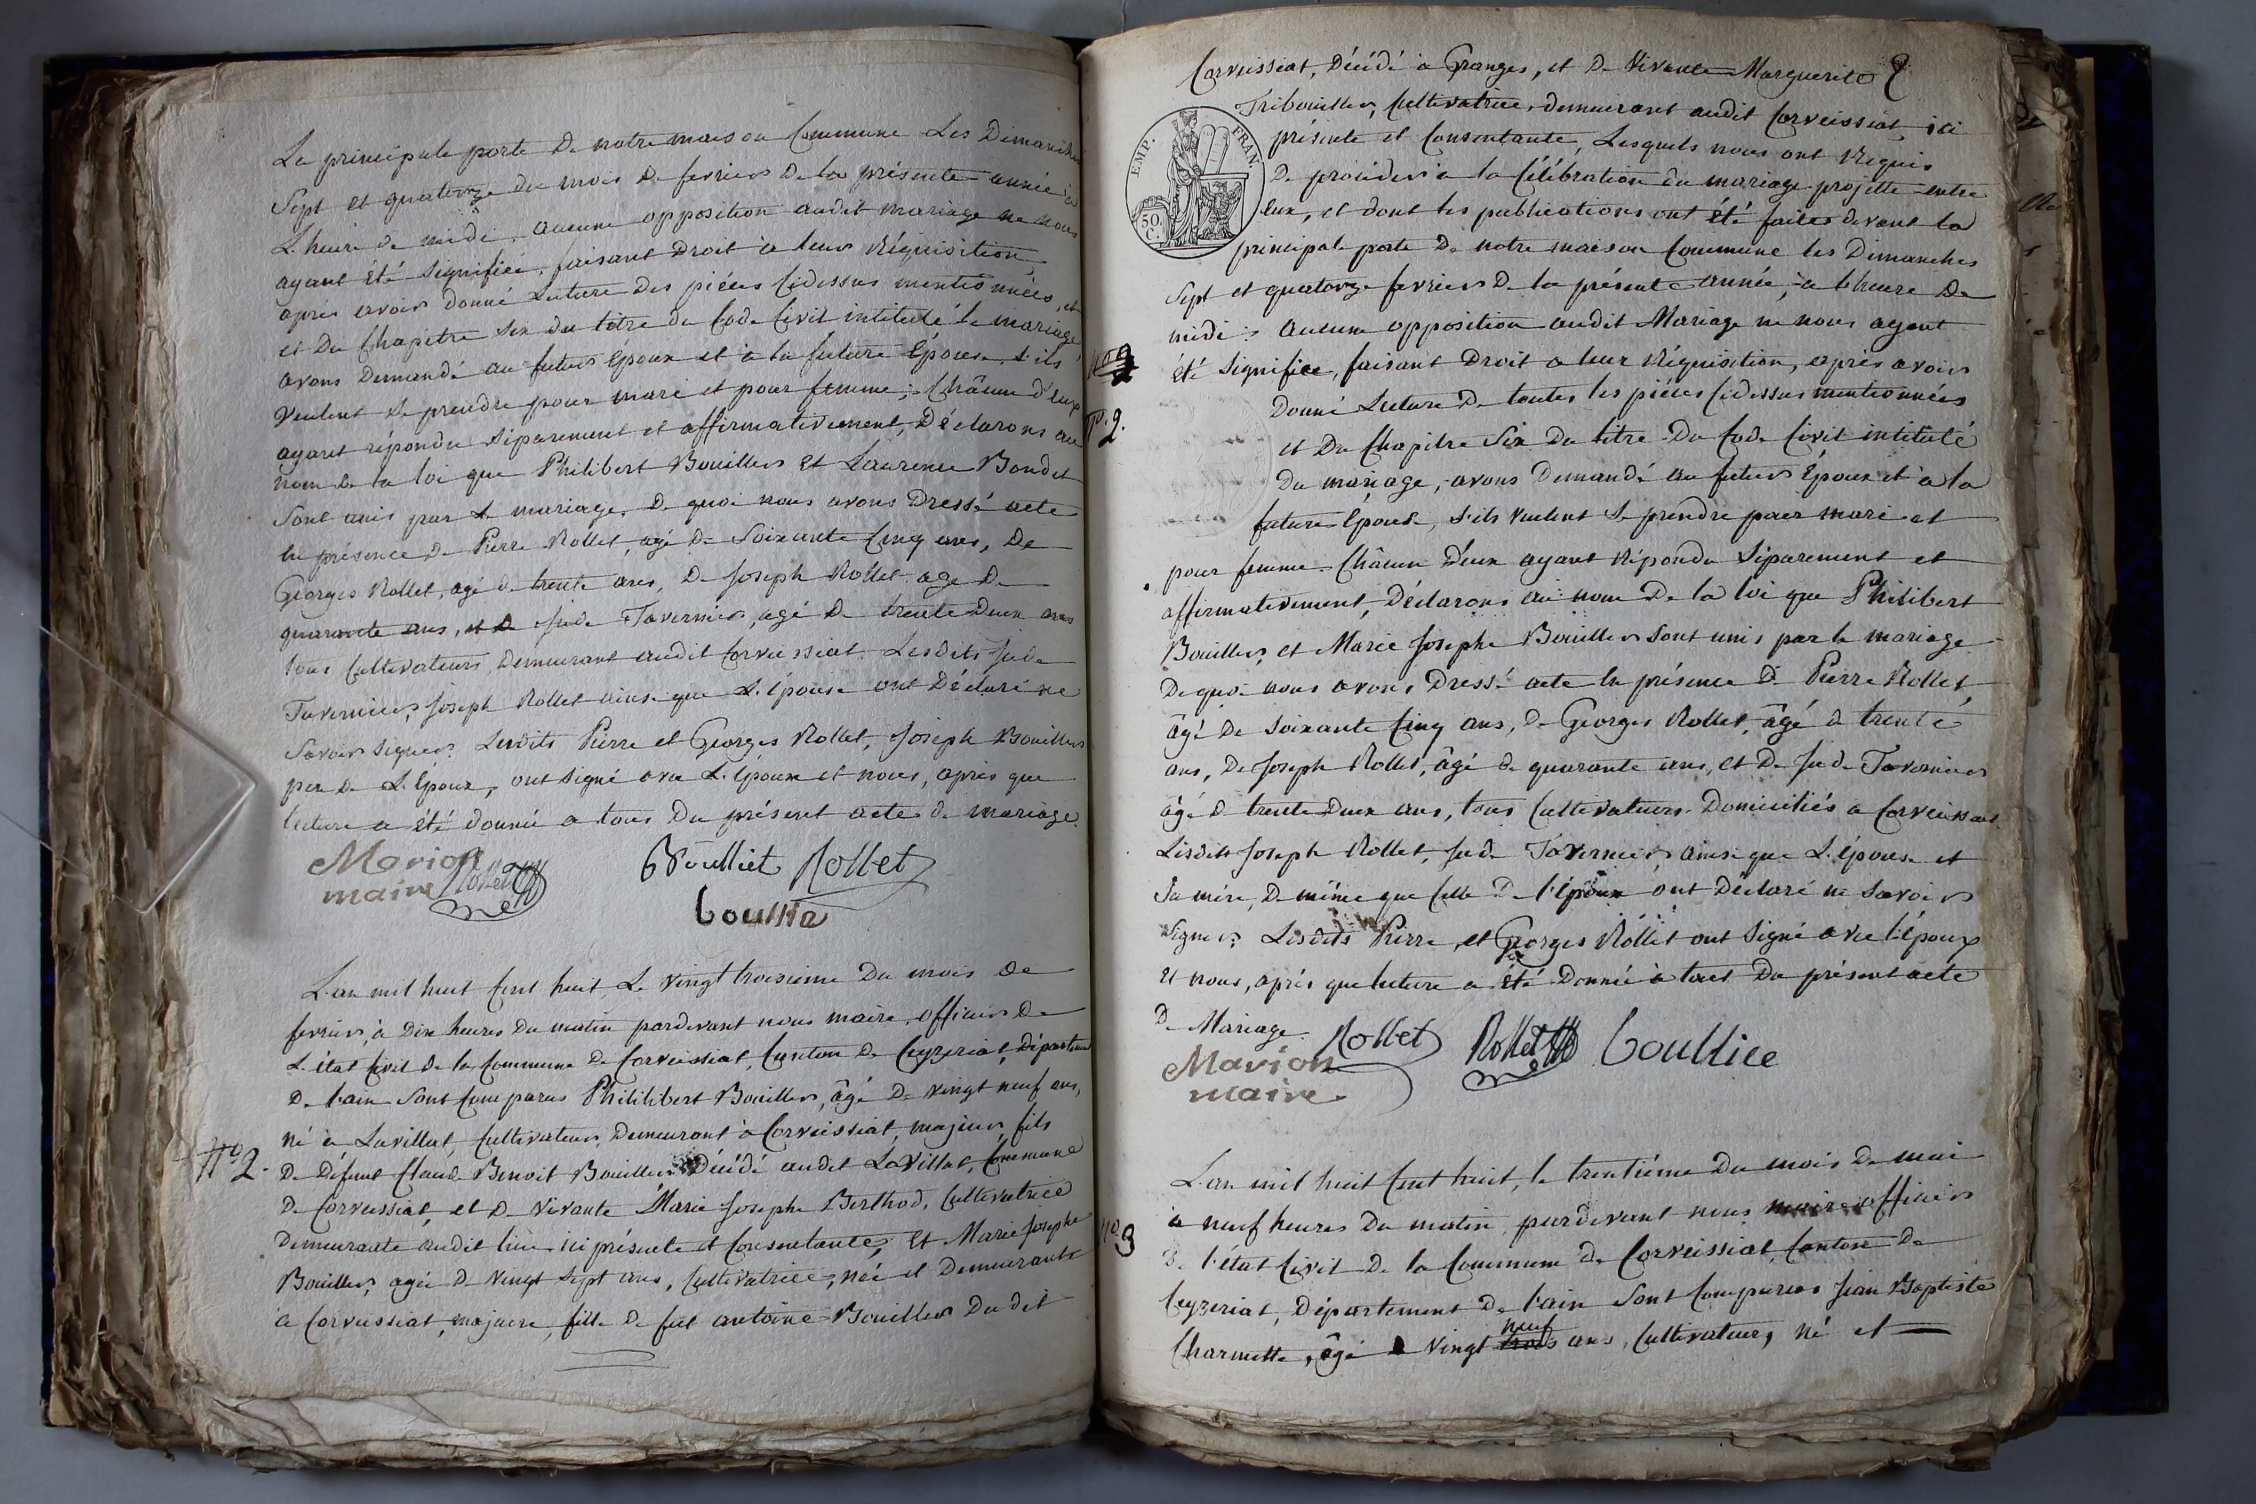 La principale porte de notre maison Commune Les Dimanches
Sept et quatorze du mois de fevrier de la présente année à
L'heure de midi. aucune opposition audit mariage ne nous
ayant été signifiée. faisant Droit à leur Réquisition,
après avoir donné Lecture des pièces Cidessus mentionnées, et
et Du Chapitre Six du titre du Code Civil intitulé le mariage,
avons Demandé au futur Epoux et à la future Epouse, s'ils
veulent Se prendre pour mari et pour femme; Châcun d'eux
ayant répondu Séparement et affirmativement, Déclarons au
nom de la loi que Philibert Bouiller et Laurence Bondet
Sont unis par le mariage. De quoi nous avons Dressé acte
En présence de Pierre Rollet, agé de Soixante Cinq ans, De
Georges Rollet, agé de trente ans, De Joseph Rollet age De
quarante ans, et de Jude Tavernier, agé De trente Deux ans
tous Cultivateurs Demeurant audit Corveissiat. Lesdits Jude
Tavernier, Joseph Rollet ainsi que L'épouse ont Déclaré ne
Savoir Signer. Lesdits Pierre et Georges Rollet, Joseph Bouiller
père de L'Epoux, ont signé avec L'époux et nous, après que
lecture a été donnée a tous Du présent acte de mariage.
Marion Rollet Boulliet Rollet
maire
Boullie
L'an mil huit Cent huit, Le vingt troisieme Du mois de
fevrier, à Dix heures Du matin pardevant nous maire, officier De
L'état Civil de la Commune De Corveissiat, Canton De Ceyzeriat, Départem
De l'ain Sont Comparus Philibert Bouiller, âgé De vingt neuf ans,
né à Lavillat, Cultivateur, Demeurant à Corveissiat, majeur, fils
N° 2.
De Défunt Claude Benoit Bouiller Décédé audit LaVillat, Commune
De Corveissiat, et De Vivante Marie Josephe Berthod, Cultivatrice
Demeurante audit lieu ici présente et Consentante; Et Marie Josephe
Bouiller, agée De vingt Sept ans, Cultivatrice, née et Demeurante
à Corveissiat, majeure, fille De feu antoine Bouiller Du dit
Corveissiat, Décédé à Granges, et De Vivante Marguerite
Tribouiller, Cultivatrice, demeurant audit Corveissiat ici
présente et Consentante, Lesquels nous ont Requis
De procéder à la Célébration du mariage projetté entre
Eux, et dont les publications ont été faites devant la
principale porte De notre maison Commune les Dimanches
Sept et quatorze fevrier De la présente année, à l'heure De
midi: aucune opposition audit Mariage ne nous ayant
N° 2
été Signifiée, faisant Droit a leur Réquisition, après avoir
Donné Lecture De toutes les pièces Cidessus mentionnées
N°. 2.
et Du Chapitre Six Du titre Du Code Civil intitulé
Du mariage, avons Demandé au futur Epoux et à la
future Epouse, s'ils veulent Se prendre pour mari et
pour femme. Châcun D'eux ayant Répondu Séparement et
affirmativement, Déclarons au nom De la loi que Philibert
Bouiller, et Marie Josephe Bouiller Sont unis par le mariage
De quoi nous avons Dressé acte En présence De Pierre Rollet,
âgé De Soixante Cinq ans, De Georges Rollet, âgé de trente
ans, De Joseph Rollet, âgé de quarante ans, et De Jude Tavernier
âgé de trente Deux ans, tous Cultivateurs Domiciliés a Corveissiat.
Lesdits Joseph Rollet, Jude Tavernier ainsi que L'épouse et
Sa mère, De même que Celle De l'Epoux ont Déclaré ne Savoir
Signer. Lesdits Pierre, et Georges Rollet ont Signé avec l'époux
Et nous, après que lecture a été Donnée à tous Du présent acte
De Mariage.
Marion Rollet Rollet Boullice
maire
L'an mil huit Cent huit, le trentième Du mois De mai
à neuf heures Du matin, pardevant nous maire officier
N° 3
De l'état Civil De la Commune De Corveissiat, Canton De
Ceyzeriat, Département De l'ain Sont Comparus Jean Baptiste
neuf
Charmette, âgé De Vingt trois ans, Cultivateur, né et
EMP. FRAN.
50 C.